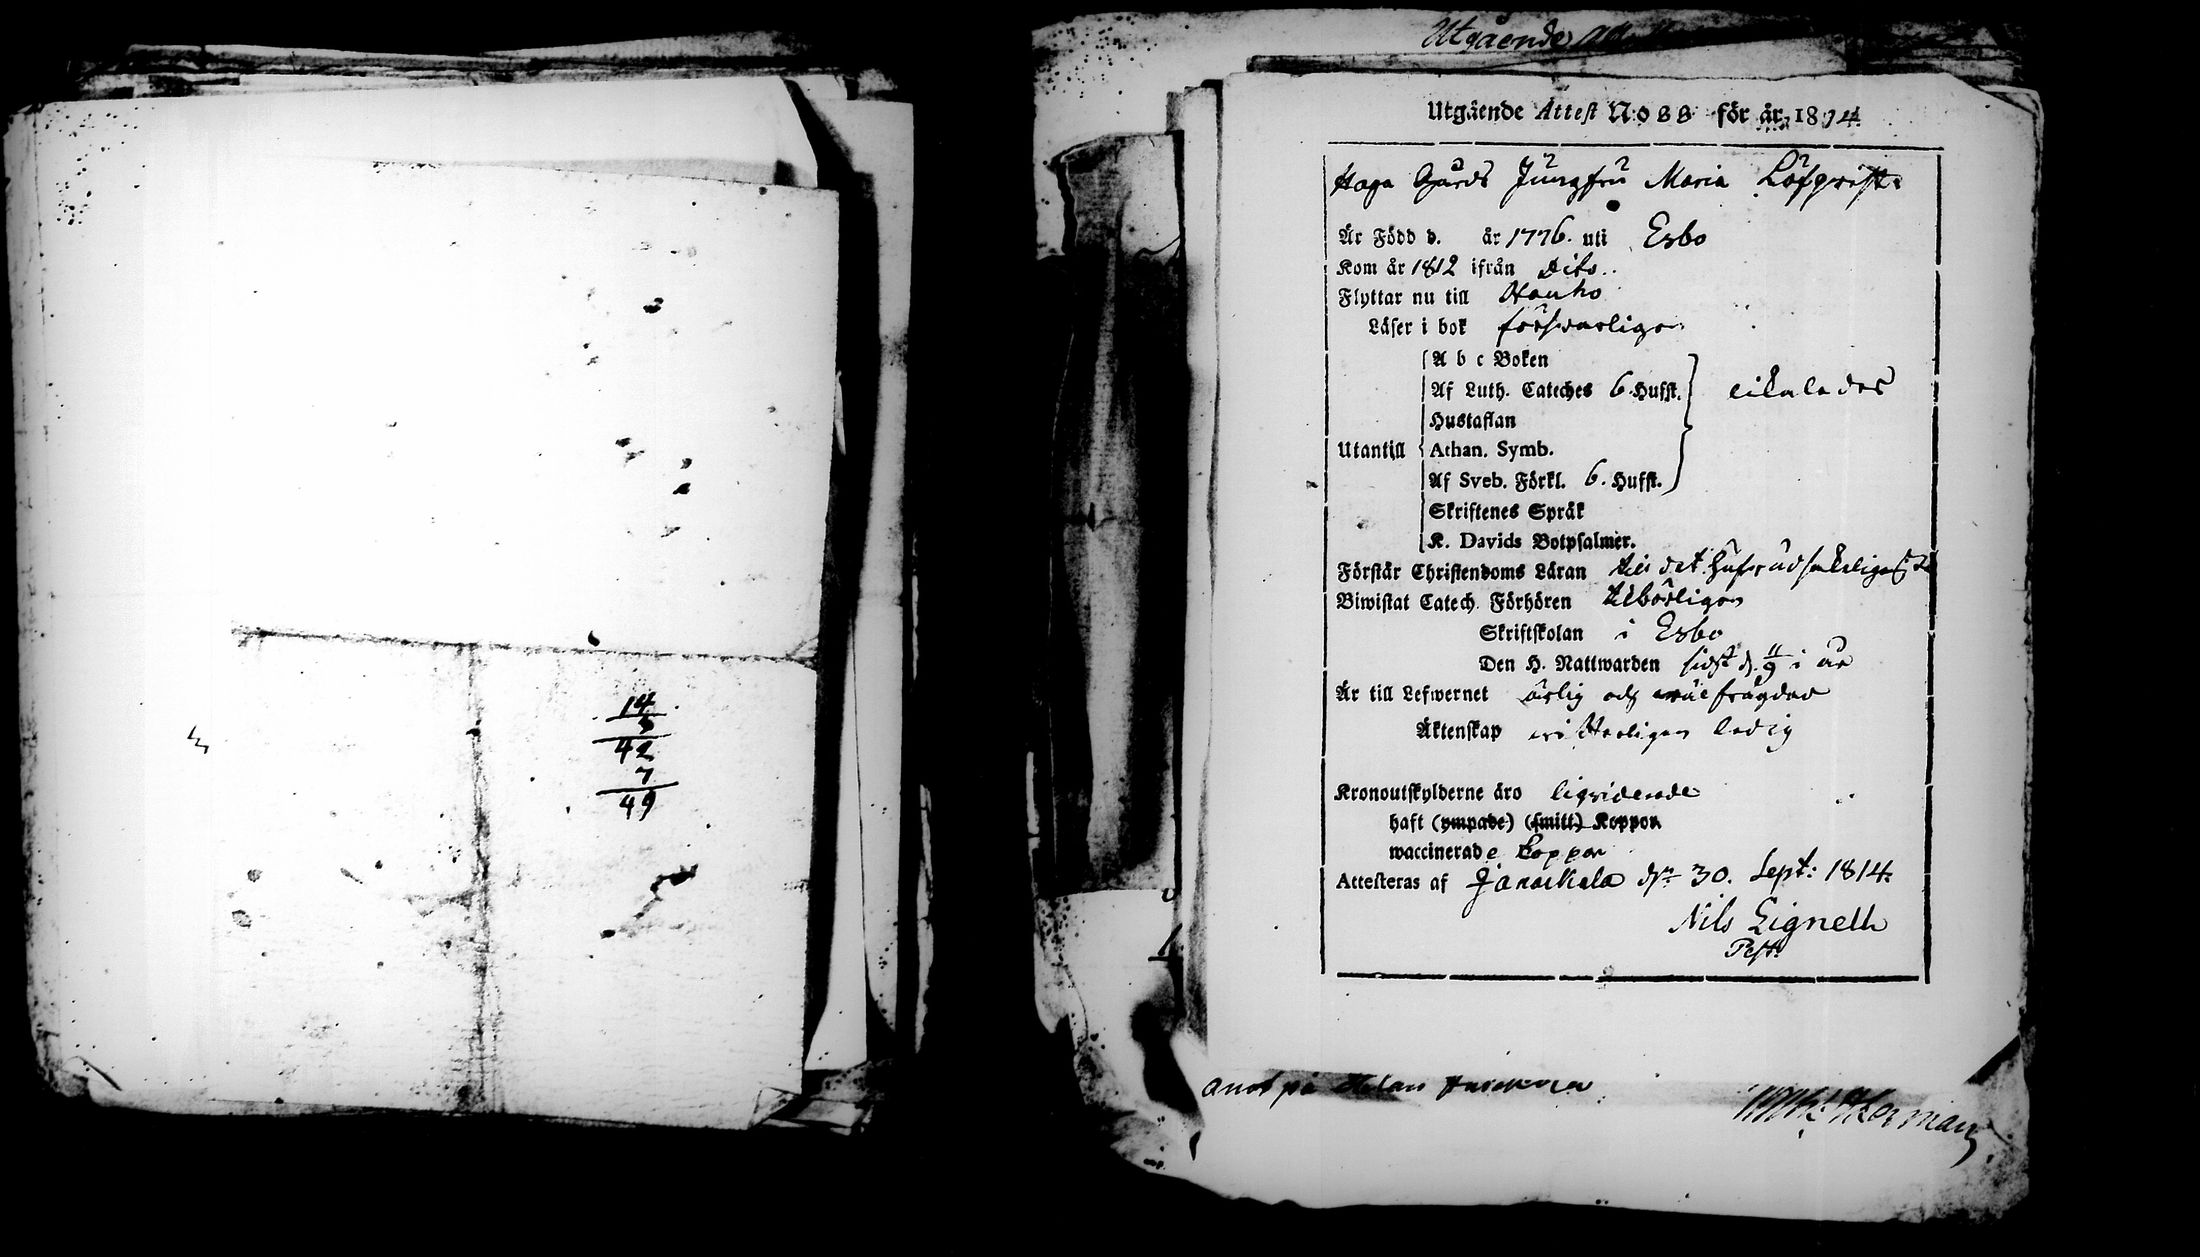 14
3
42
7
49
Utgående
Utgående Attest N:o 88 för år 1814
Haga Gårds Jungfru Maria Löfqvist
Är Född d. år 1776. uti Esbo
Kom år 1812 ifrån dito.
Flyttar nu till Hauho
Läser i bok försvarligen
A b c Boken
Af Luth. Cateches 6. Hufst. likaledes
Hustaflan
Utantill Athan. Symb.
Af Sveb. Förkl. 6. Hufst.
Skriftenes Språk
K. Davids Botpsalmer.
Förstår Christendoms Läran till det hufvudsakeligaste
Biwistat Catech. Förhören tilbörligen
Skriftskolan i Esbo
Den H. Nattwarden sidst d. 11/9 i år
Är till Lefwernet ärlig och väl frägdad
Äktenskap vitterligen ledig
Kronoutskylderne äro liqviderade
haft (ympade) (smitt) Koppor.
waccinerade Koppor
Attesteras af Janackala d:n 30. Sept: 1814.
Nils Lignell
Past:
på